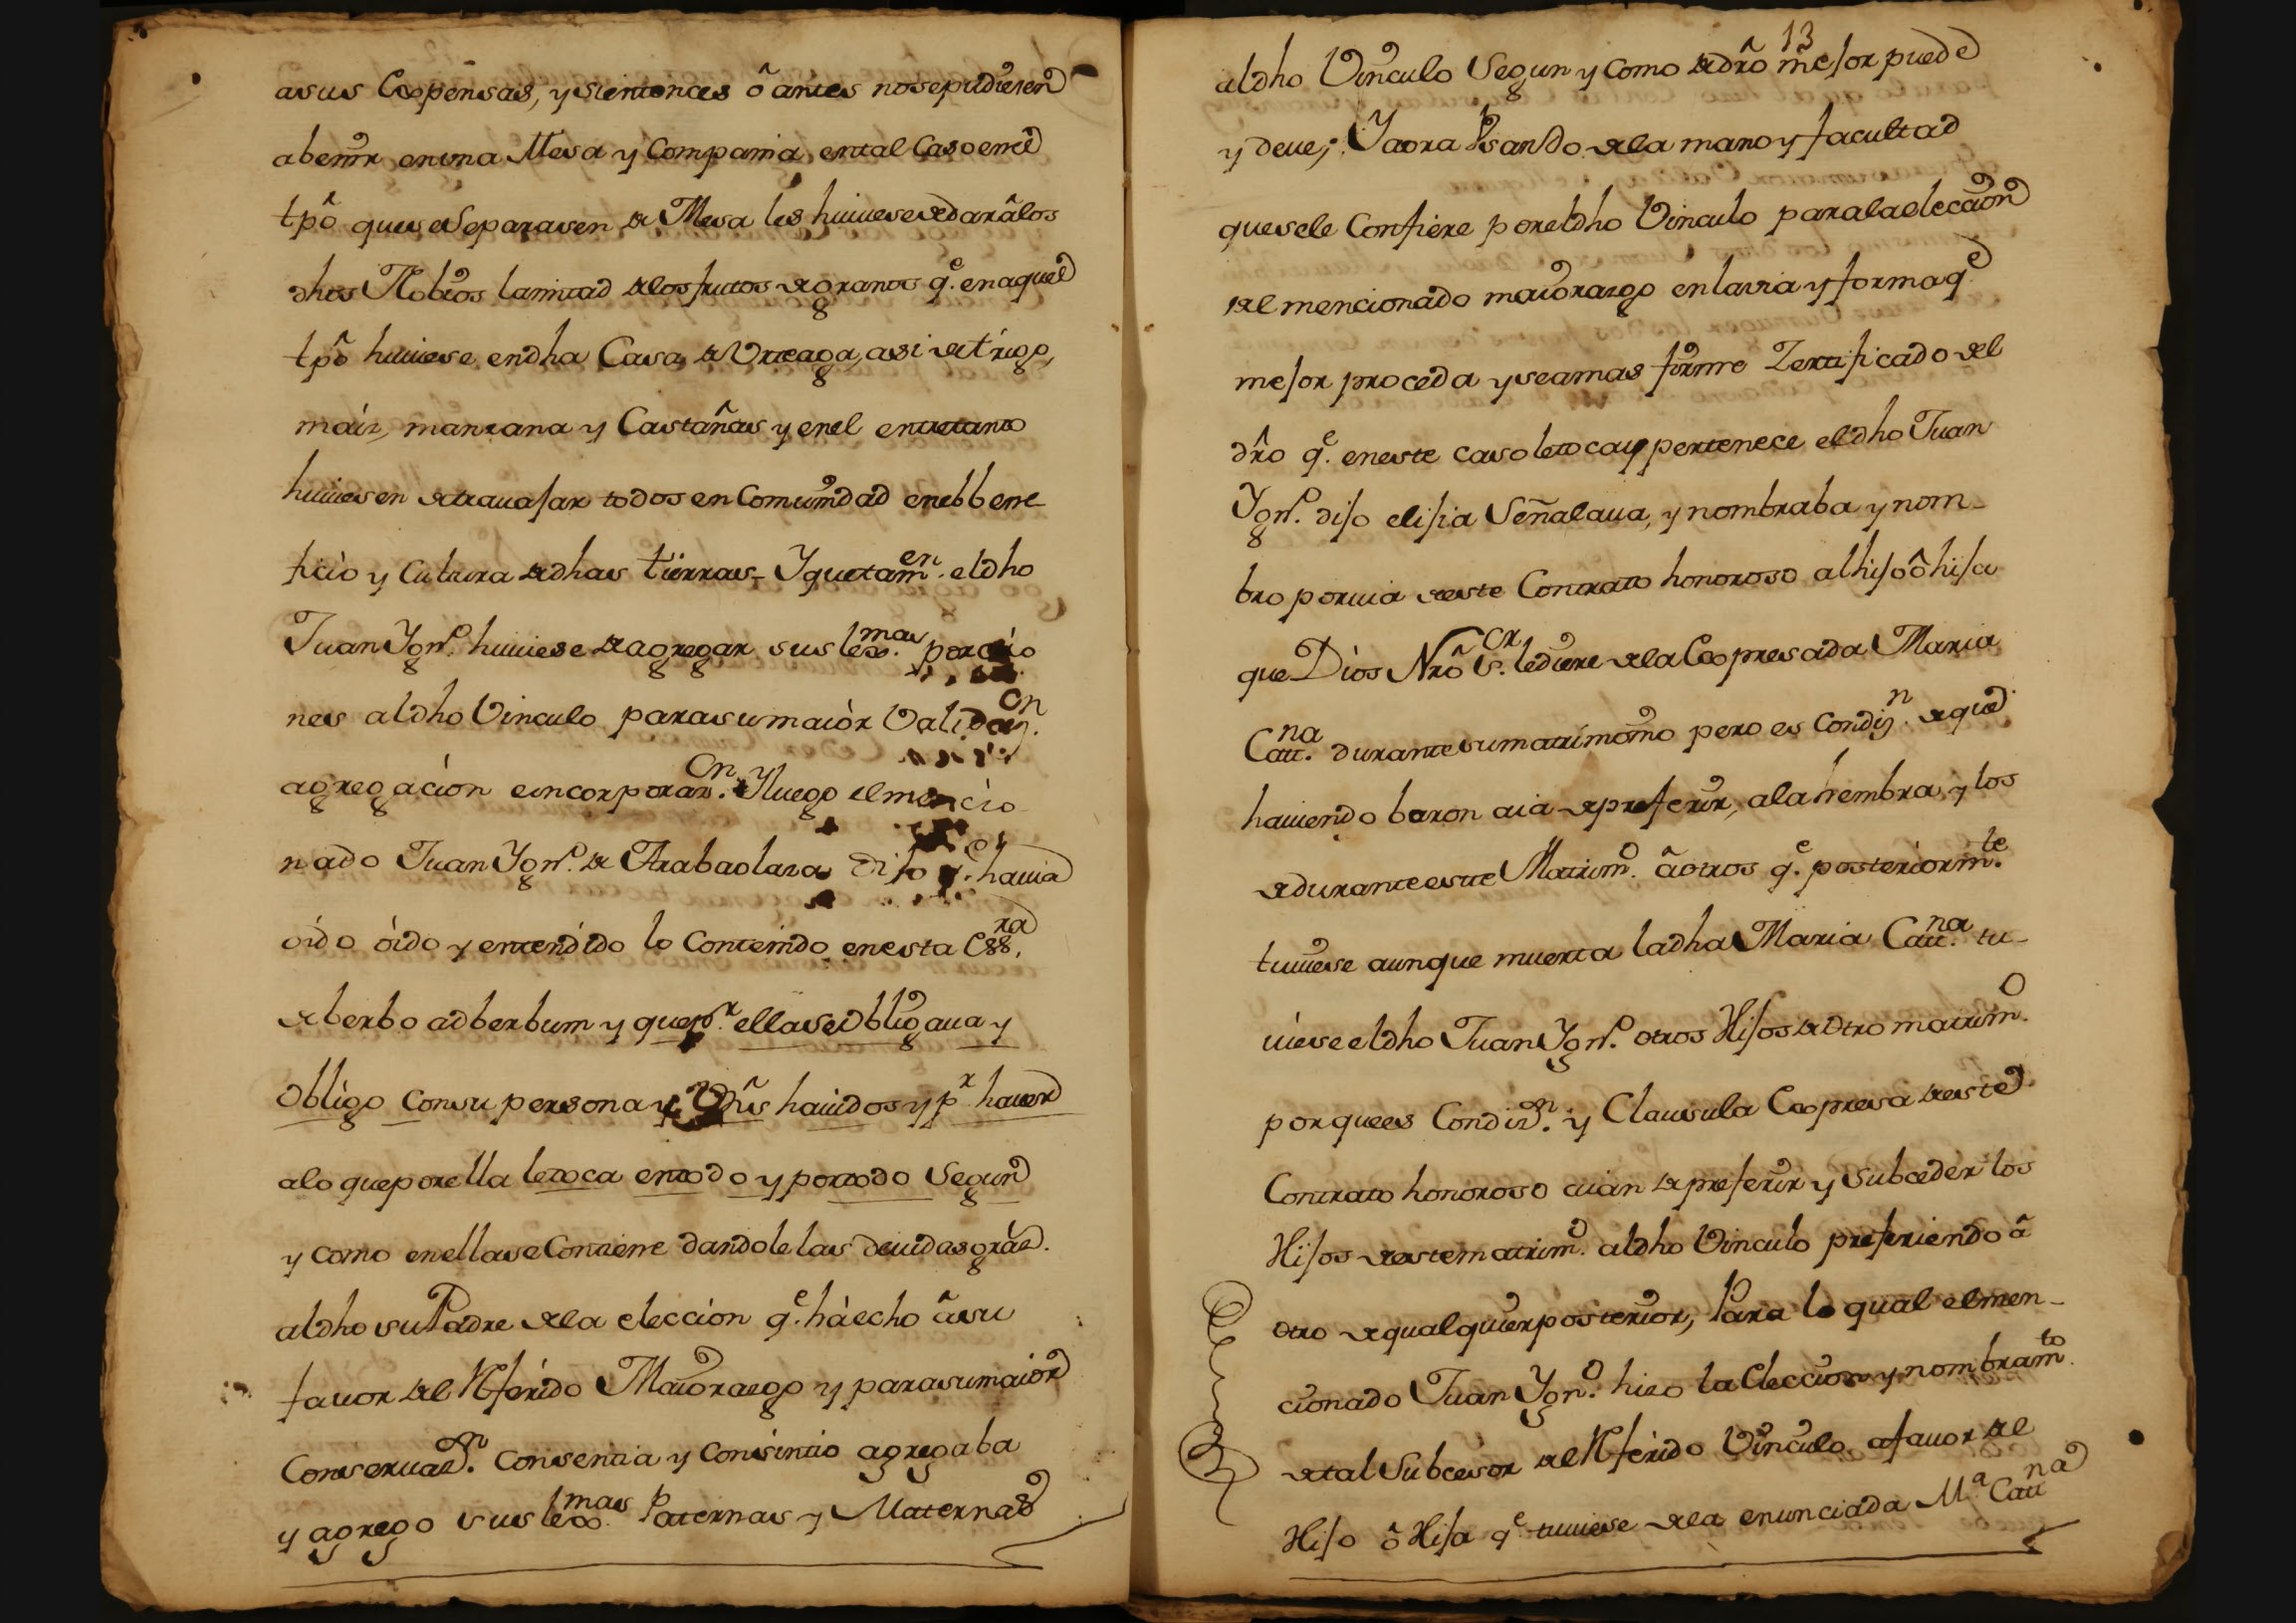 asus Expensas, y si entonces ô antes nose pudiesen
abenir en una Mesa y Compania, en tal Caso en el
tpô que se Separasen de Mesa les huuiese de dar âlos
dhos Nobios la mitad de los frutos de granos q.e en aquel
tpô huuiese en dha Casa de Urteaga, asi de trigo,
máiz, manzana y Castañas y en el entretanto
huuiesen de trauajar todos en Comunidad en el bene
ficio y Cultura de dhas tierras_ Y que tam.en el dho
Juan Ygn.o huuiese de agregar sus lex.mas porcio
nes aldho Vinculo para su maiòr Validaz.on
agregaciòn e incorporaz.on Y luego el mencio
nado Juan Ygn.o de Arabaolaza Dijo q.e hauia
oìdo òido y entendìdo lo Contenido en esta Ess.ra
de berbo ad berbum y que p.r ella se obligaua y
Obligo Con su persona y Vnês hauidos y p.r hauer
alo que por ella le toca en todo y por todo Segun
y como en ella se Contiene dandole las deuidas graz.
aldho su Padre de la elecciòn q.e hà echo â su
fauor del Referido Maiorazgo y para su maior
Conseruaz.on Consentia y Consintio agregaba
y agrego sus lex.mas Paternas y Maternas
13
aldho Vinculo Segun y Como de drô mejor puede
y deue; Y aora Vsando de la mano y facultad
que se le Confiere por el dho Vinculo para la eleccion
del mencionado maiorazgo en la via y forma q.e
mejor proceda y sea mas firme Zertificado del
drô q.e en este caso le toca y pertenece el dho Juan
Ygn.o dijo elijia Señalaua, y nombraba y nom_
bro por via de este Contrato honoroso al hijo ô hija
que Dios Nrô S.or le diere de la Expresada Maria
Catt.na durante su matrimonio pero es Condiz.n de que
hauiendo baron aia de preferir, a la hembra, y los
de durante este Matrim.o â otros q.e posteriorm.te
tuuiese aunque muerta la dha Maria Catt.na tu_
uiese el dho Juan Ygn.o otros Hijos de Otro matrim.o
por que es Condiz.on y Clausula Expresa de este
Contrato honoroso aian de preferir y Subceder los
Hijos de este matrim.o aldho Vinculo prefiriendo â
otro de qualquier posterior, Para lo qual el men_
cionado Juan Ygn.o hizo la Eleccion y nombram.to
de tal Subcesor del Referido Vinculo a fauor del
Hijo ô Hija q.e tuuiese de la enunciada M.a Catt.na